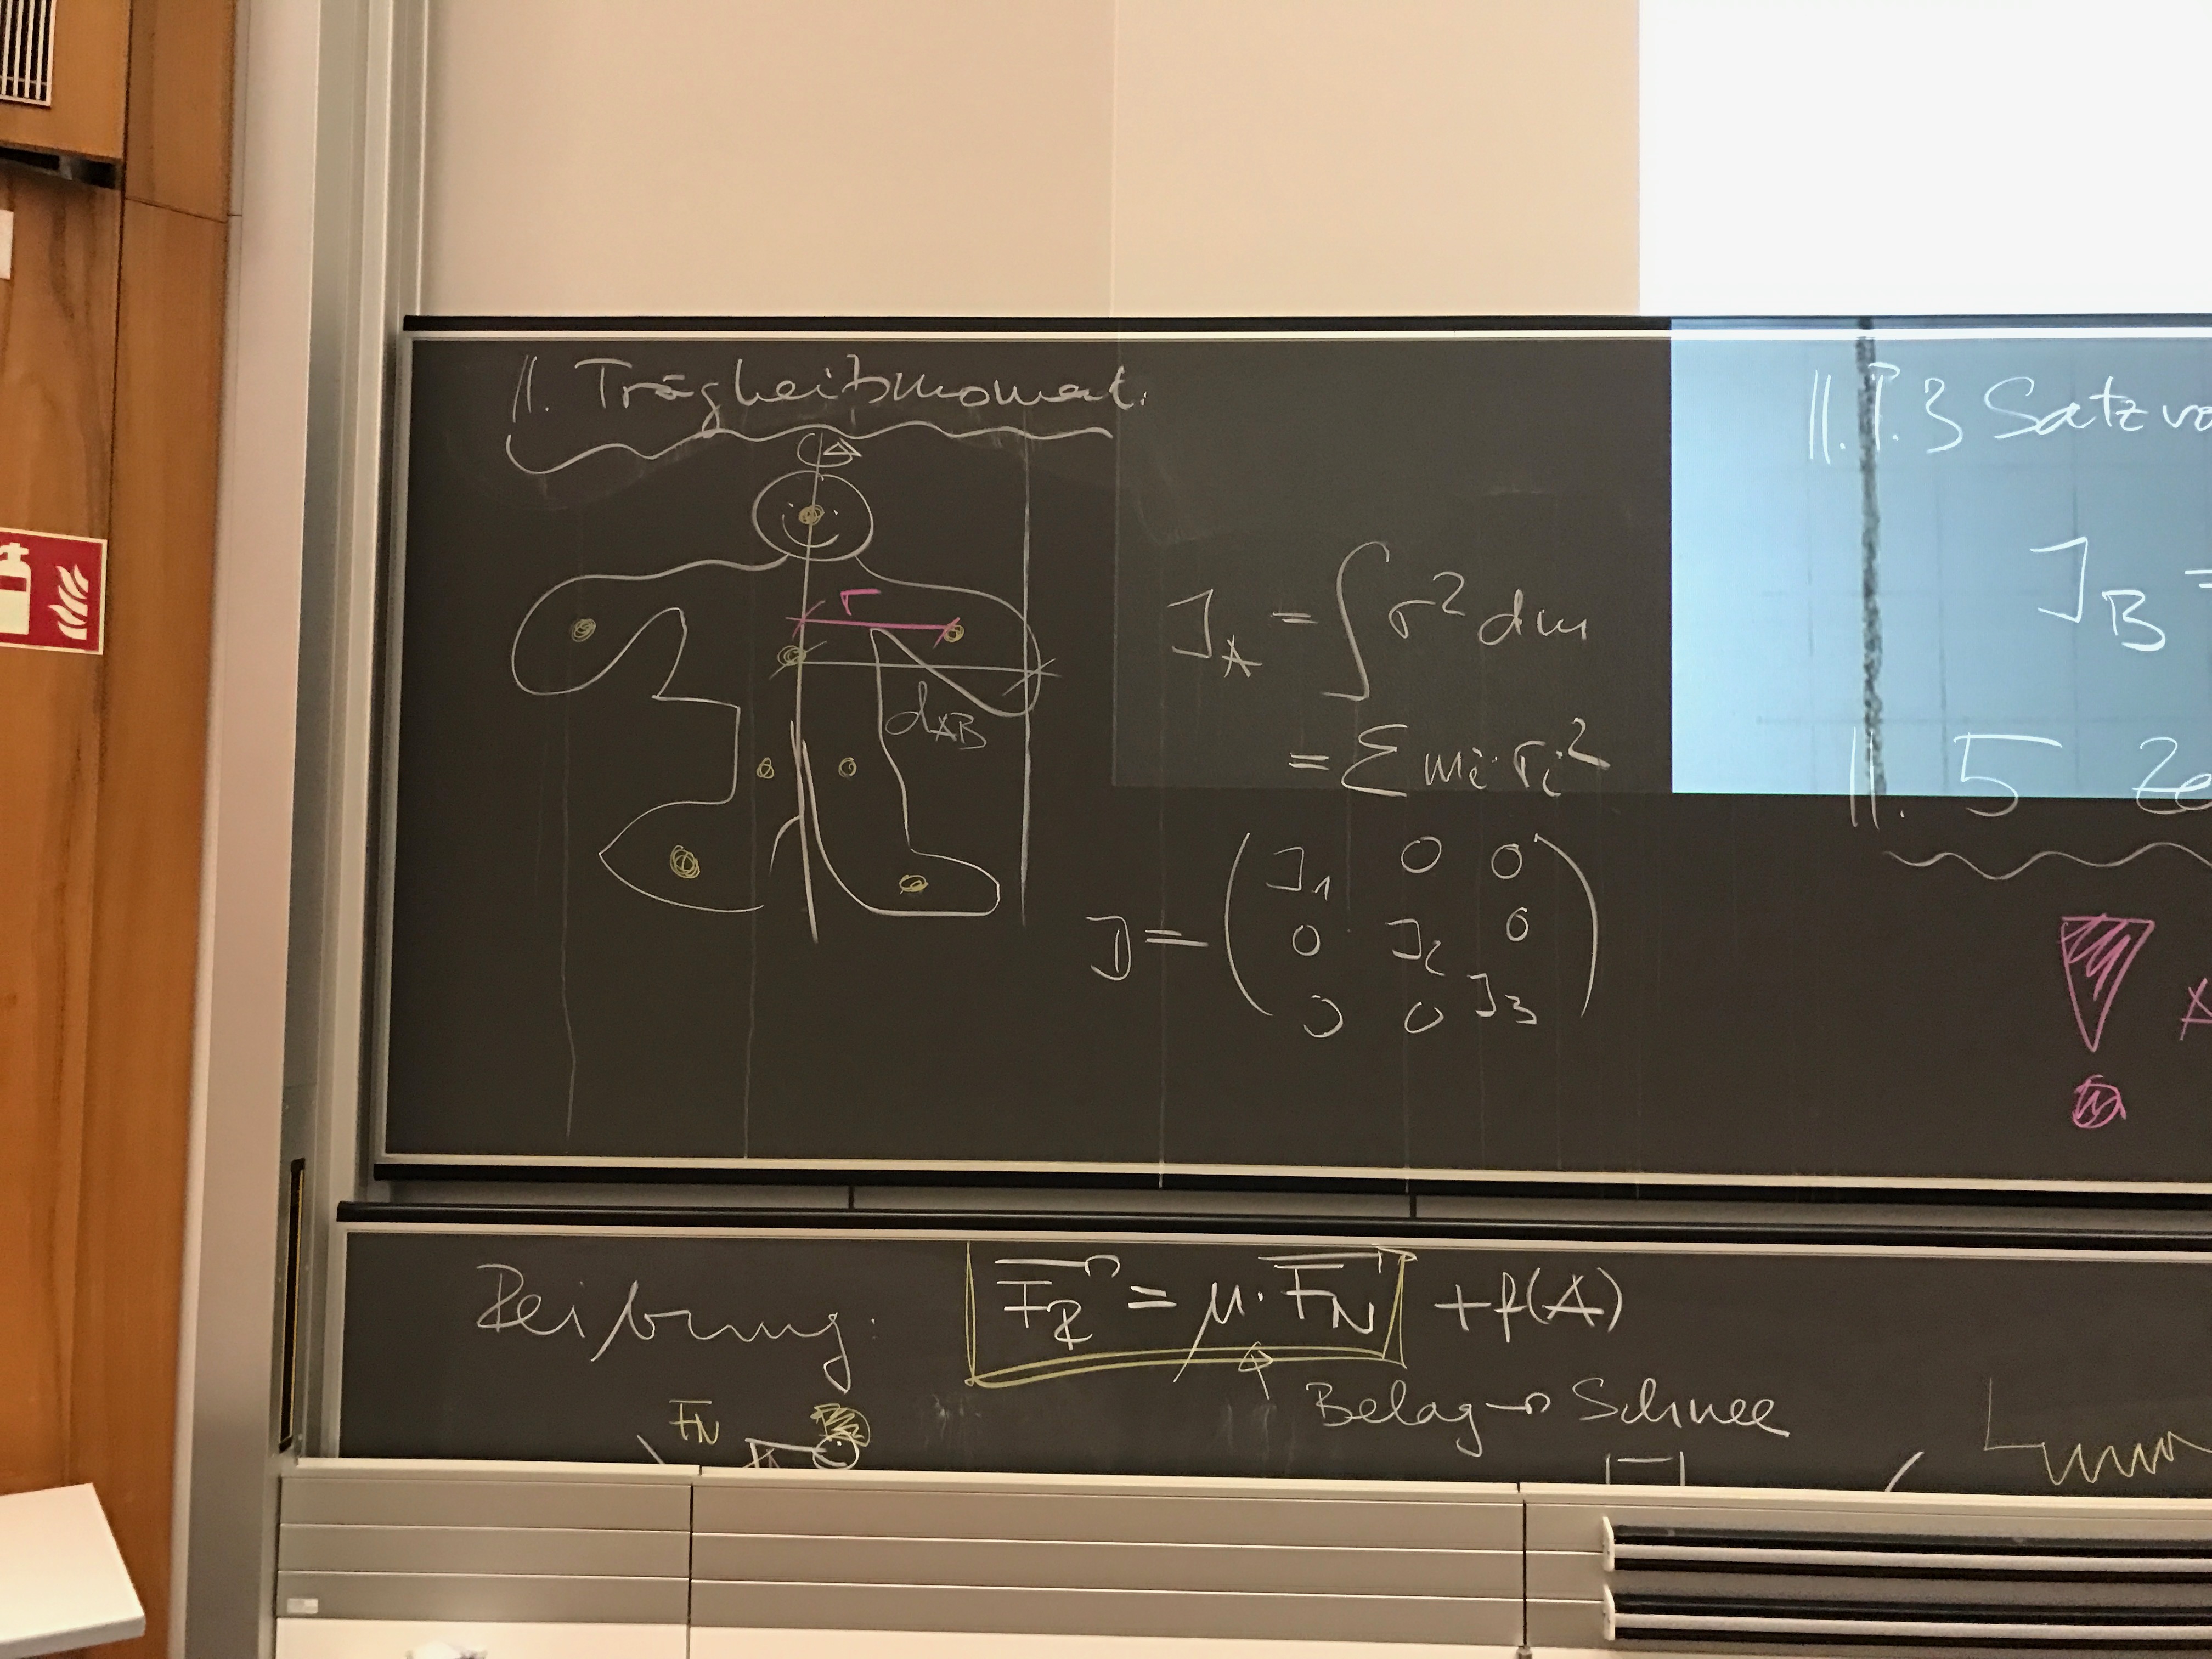 11. Trägheitsmoment.
r
dAB
J_A = ∫ r² dm
= Σ mi · ri²
J = ( J1 0 0
0 J2 0
0 0 J3 )
11.1.3 Satz
J_B =
11.5
A
Reibung: F_R = μ · F_N + f(A)
Belag → Schnee
F_N